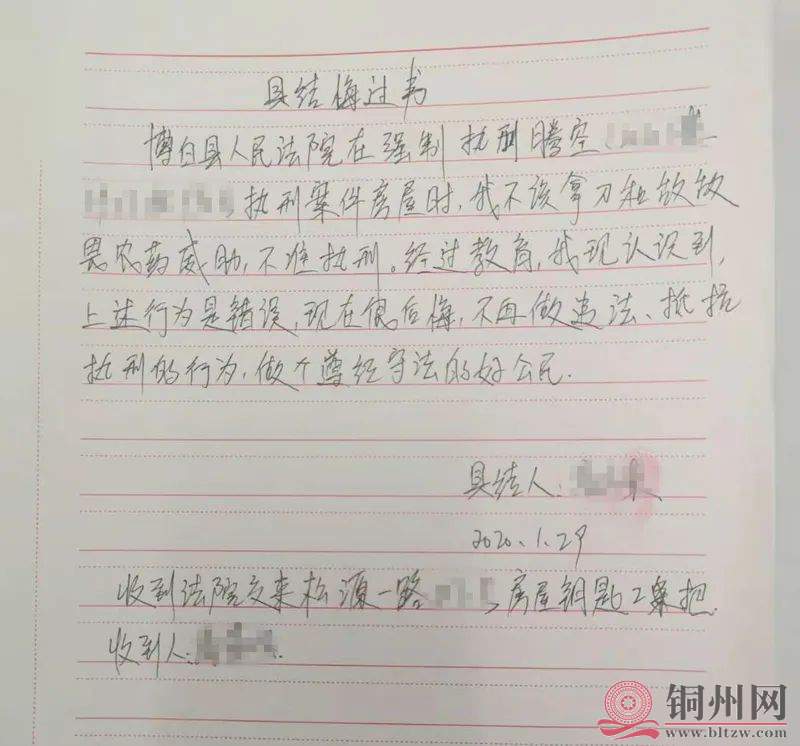 具结悔过书
博白县人民法院在强制执刑腾空
执刑案件房屋时,我不该拿刀和做饮
畏农药威胁,不准执刑。经过教育,我现认识到,
上述行为是错误,现在很后悔,不再做违法、抵抗
执刑的行为,做个遵纪守法的好公民.
具结人:
2020.1.29
收到法院交来松源一路 房屋钥匙2把.
收到人:
铜州网
www.bltzw.com